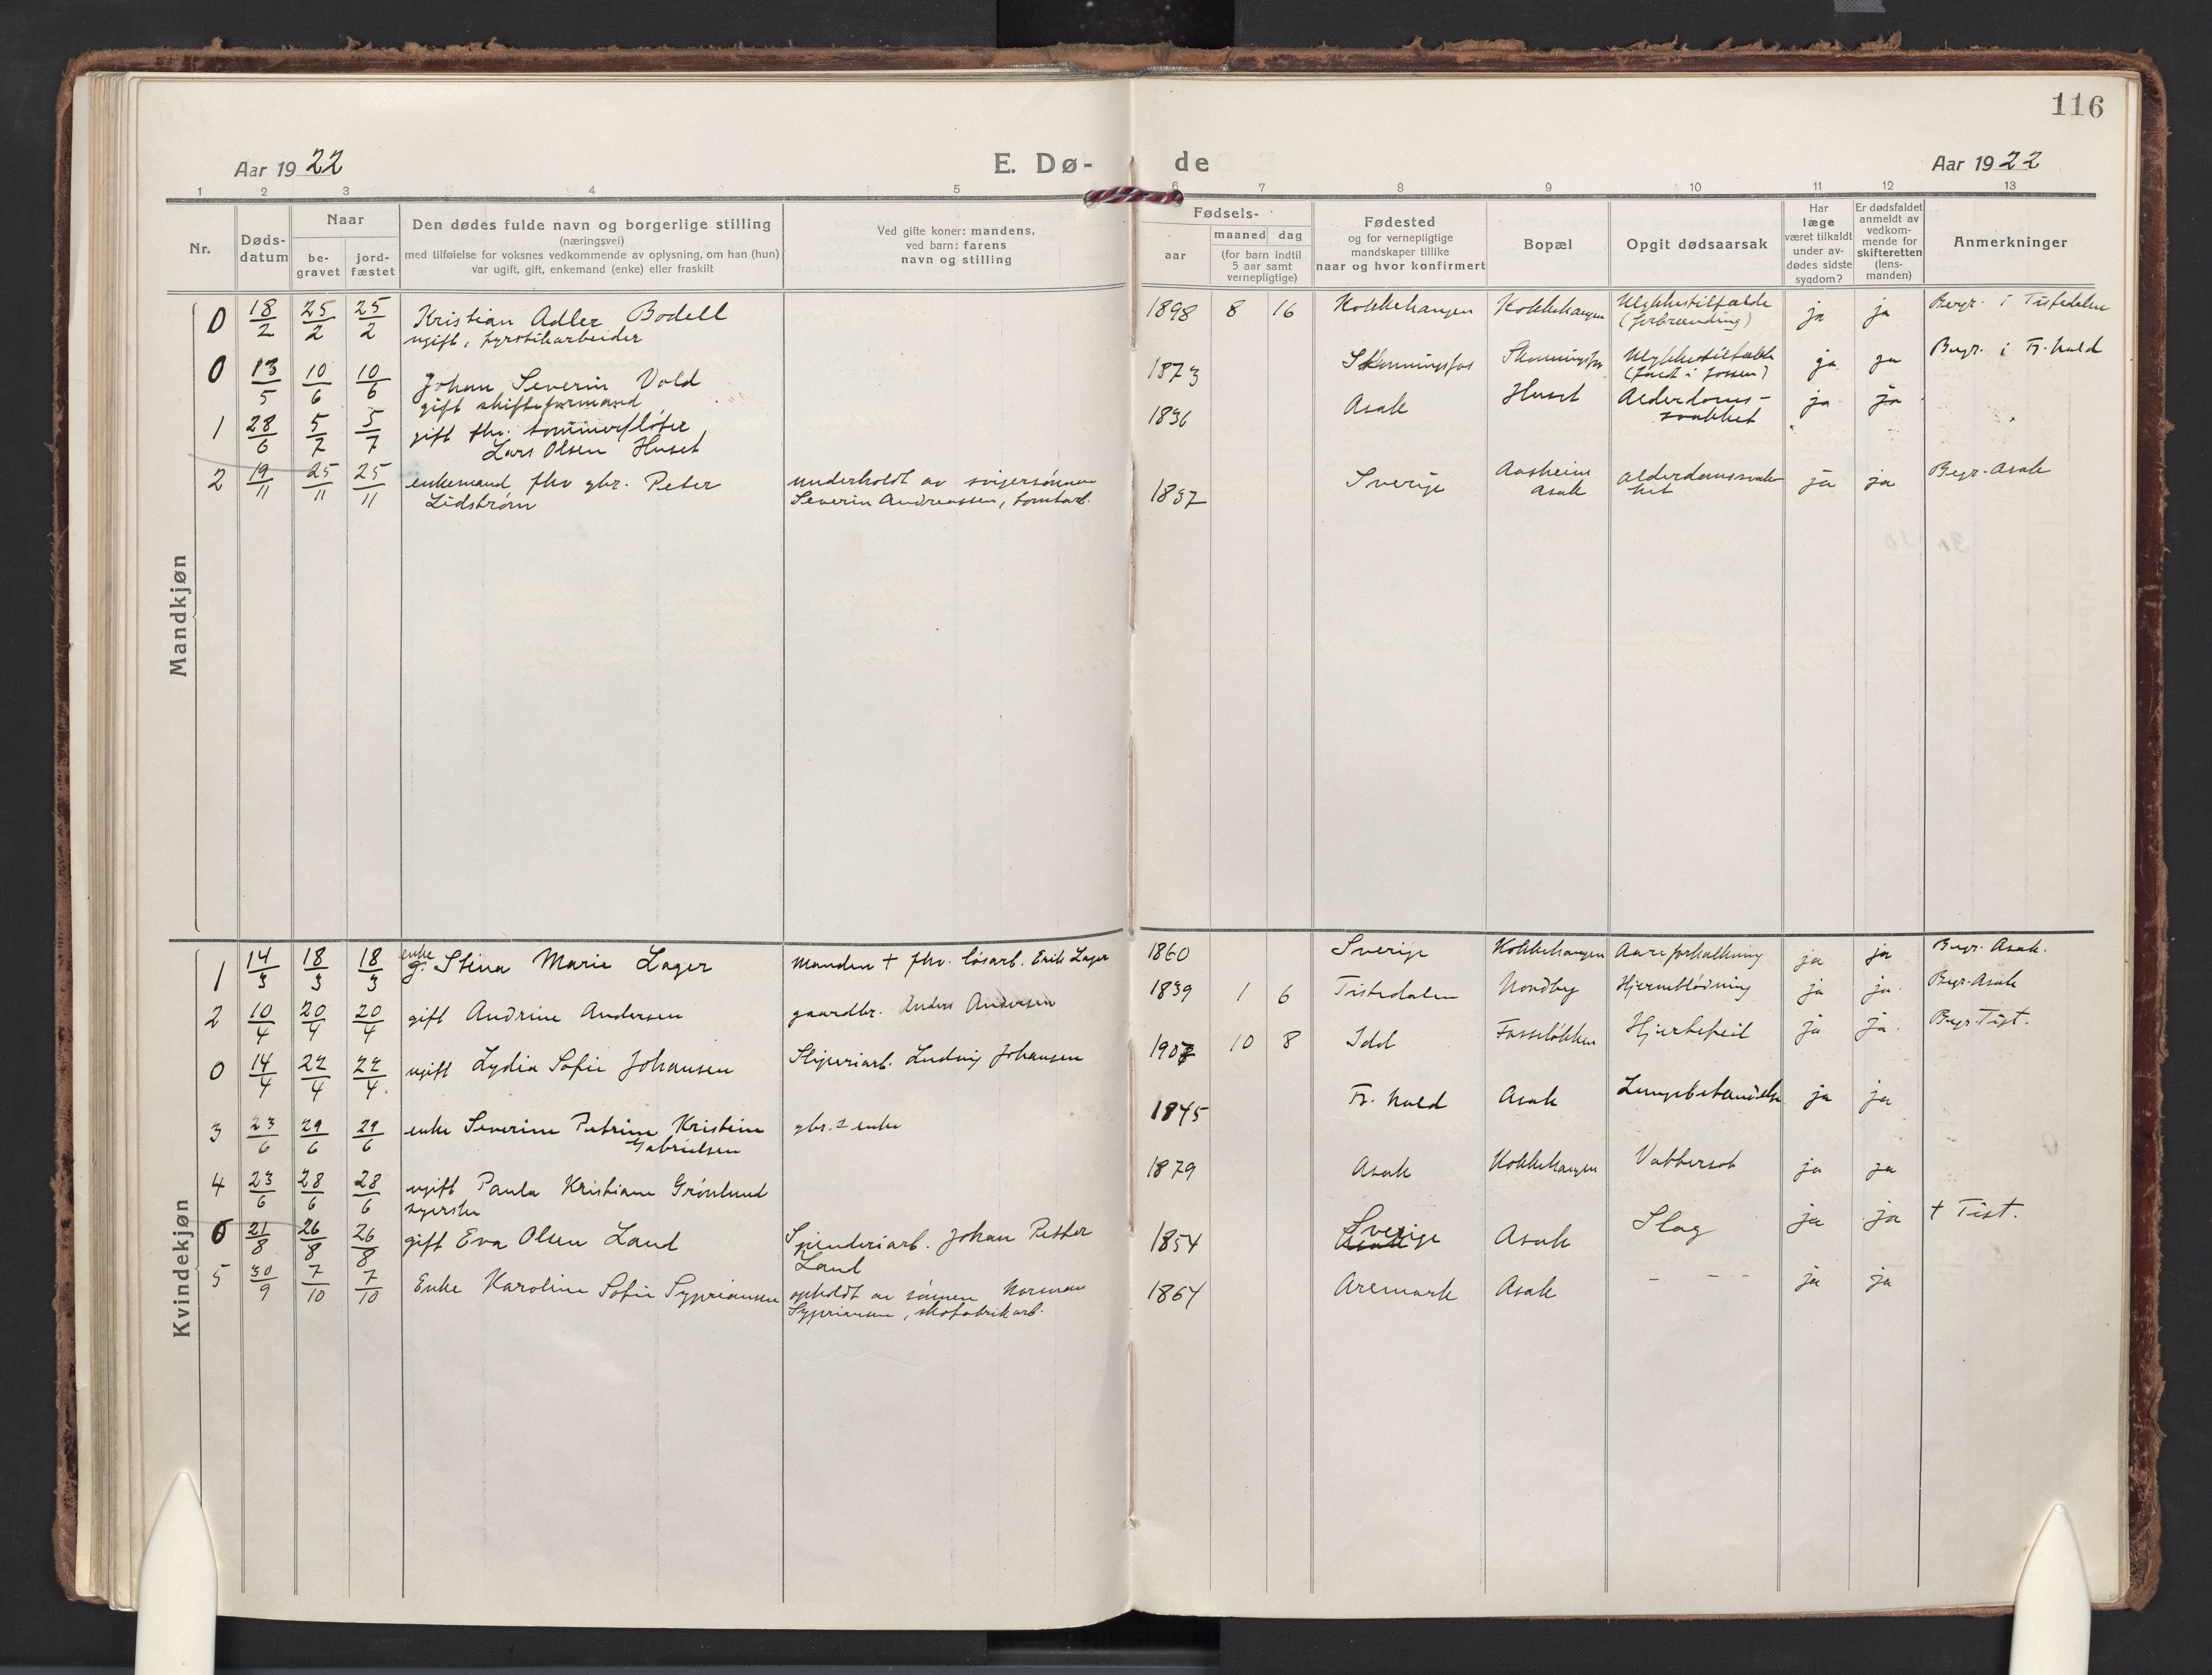 116
Aar 1922 E. Dø- de Aar 1922
1 2 3 4 5 6 7 8 9 10 11 12 13
Nr.
Døds-
datum
Naar
be-
gravet
jord-
fæstet
Den dødes fulde navn og borgerlige stilling
(næringsvei)
med tilføielse for voksnes vedkommende av oplysning, om han (hun)
var ugift, gift, enkemand (enke) eller fraskilt
Ved gifte koner: mandens,
ved barn: farens
navn og stilling
Fødsels-
aar
maaned dag
(for barn indtil
5 aar samt
vernepligtige)
Fødested
og for vernepligtige
mandskaper tillike
naar og hvor konfirmert
Bopæl
Opgit dødsaarsak
Har
læge
været tilkaldt
under av-
dødes sidste
sygdom?
Er dødsfaldet
anmeldt av
vedkom-
mende for
skifteretten
(lens-
manden)
Anmerkninger
Mandkjøn
0 18/2 25/2 25/2 Kristian Adler Bodell 1898 8 16 Kokkehaugen Kokkehaugen Ulykkestilfælde ja ja Begr. i Tistedalen
ugift, fyrstikarbeider (forbrænding)
0 13/5 10/6 10/6 Johan Severin Vold 1873 Skonningsfos Skonningsfos Ulykkestilfælde ja ja Begr. i Fr.hald
gift skifteformand
1 28/6 5/7 5/7 gift fhv. tømmerfløter 1836 Asak Huset Alderdoms- ja ja
Lars Olsen Huset svakhet
2 19/11 25/11 25/11 enkemand fhv gbr. Peter underholdt av svigersønnen 1837 Sverige Aasheim alderdomssvak- ja ja Begr. Asak
Lidstrøm Severin Andreassen, tomtarb. Asak het
Kvindekjøn
1 14/3 18/3 18/3 enke g. Stina Marie Lager Manden + fhv. løsarb. Erik Lager 1860 Sverige Kokkehaugen Aareforkalkning ja ja Begr. Asak.
2 10/4 20/4 20/4 gift Andrine Andersen gaardbr. Anders Andersen 1839 1 6 Tistedalen Nordby Hjerneblødning ja ja. Begr. Asak
0 14/4 22/4 22/4 ugift Lydia Sofie Johansen Sliperiarb. Ludvig Johansen 1907 10 8 Idd Fosseløkken Hjertefeil ja ja. Begr. Tist.
3 23/6 29/6 29/6 enke Severine Petrine Kristine gbr.s enke 1845 Fr.hald Asak Lungebetændelse ja ja
Gabrielsen
4 23/6 28/6 28/6 ugift Paula Kristiane Grønlund 1879 Asak Kokkehaugen Vattersot ja ja
syerske
0 21/8 26/8 26/8 gift Eva Olsen Land Spinderiarb. Johan Petter 1854 Sverige Asak Slag ja ja + Tist.
Land
5 30/9 7/10 7/10 Enke Karoline Sofie Sypriansen opholdt av sønnen Norman 1864 Aremark Asak - - - ja ja
Syprianson, skofabrikarb.